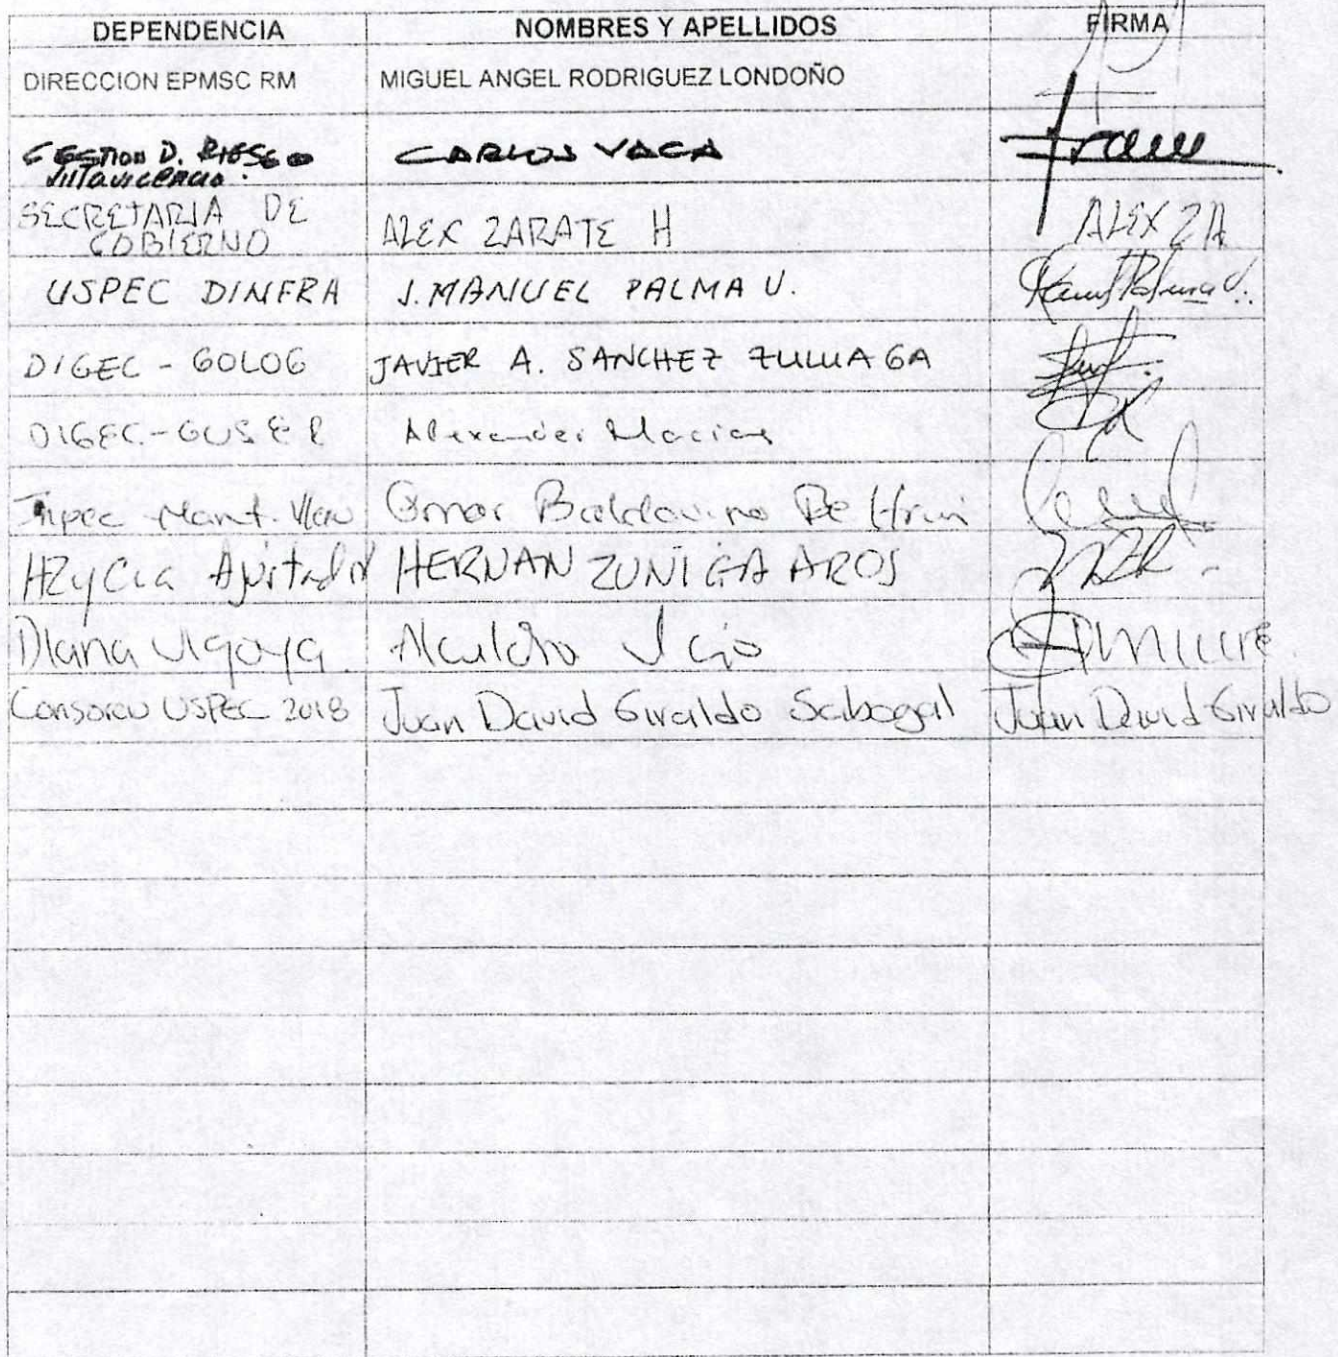 DEPENDENCIA NOMBRES Y APELLIDOS FIRMA
DIRECCION EPMSC RM MIGUEL ANGEL RODRIGUEZ LONDOÑO
GESTION D. RIESGO CARLOS VACA
Villavicencio.
SECRETARIA DE
GOBIERNO ALEX ZARATE H ALEX ZA
USPEC DINFRA J. MANUEL PALMA V.
DIGEC - GOLOG JAVIER A. SANCHEZ ZULUAGA
DIGEC-GUSER Alexander Macias
Inpec Mant. Omar Baldovino Beltran
HZyCia HERNAN ZUNIGA AROS
Diana Vigoya Alcaldia Vcio
Consorcio USPEC 2018 Juan David Giraldo Sabogal Juan David Giraldo